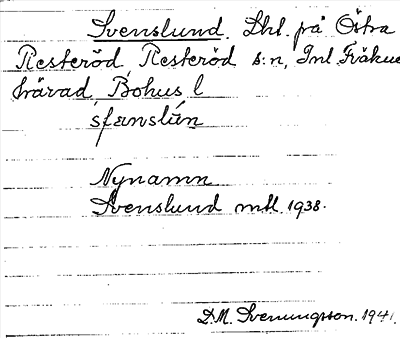 Svenslund. Lht. på Östra
Resteröd Resteröd s:n, Inl Fräkne
härad Bohus l
sfænslún
Nynamn
Svenslund mtl. 1938.
D.M. Svenungsson. 1941.